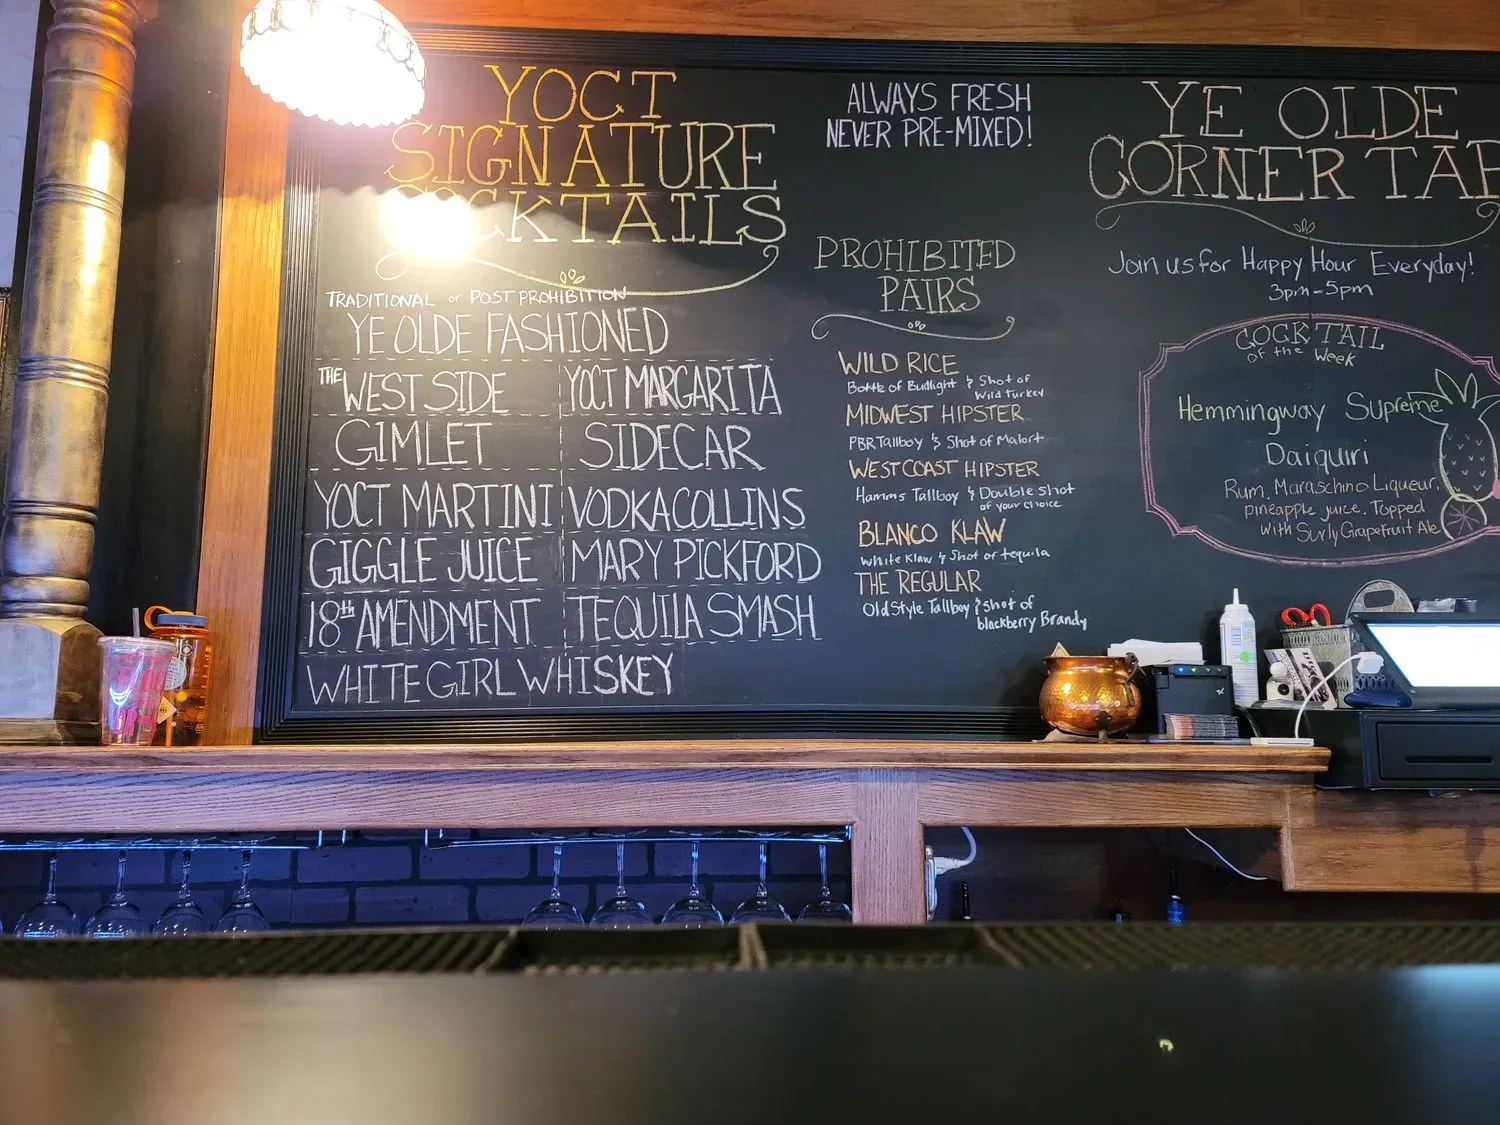 YOCT
SIGNATURE
COCKTAILS
TRADITIONAL or POST PROHIBITION
YE OLDE FASHIONED
THE WEST SIDE
YOCT MARGARITA
GIMLET
SIDECAR
YOCT MARTINI
VODKA COLLINS
GIGGLE JUICE
MARY PICKFORD
18th AMENDMENT
TEQUILA SMASH
WHITE GIRL WHISKEY
ALWAYS FRESH
NEVER PRE-MIXED!
PROHIBITED
PAIRS
WILD RICE
Bottle of Budlight & Shot of
Wild turkey
MIDWEST HIPSTER
PBR Tallboy & Shot of Malort
WEST COAST HIPSTER
Hamms Tallboy & Double shot
of your choice
BLANCO KLAW
White Klaw & Shot of tequila
THE REGULAR
Old Style Tallboy & shot of
blackberry Brandy
YE OLDE
CORNER TAP
Join us for Happy Hour Everyday!
3pm-5pm
COCKTAIL
of the Week
Hemmingway Supreme
Daiquiri
Rum, Maraschino Liqueur,
pineapple juice. Topped
with Surly Grapefruit Ale